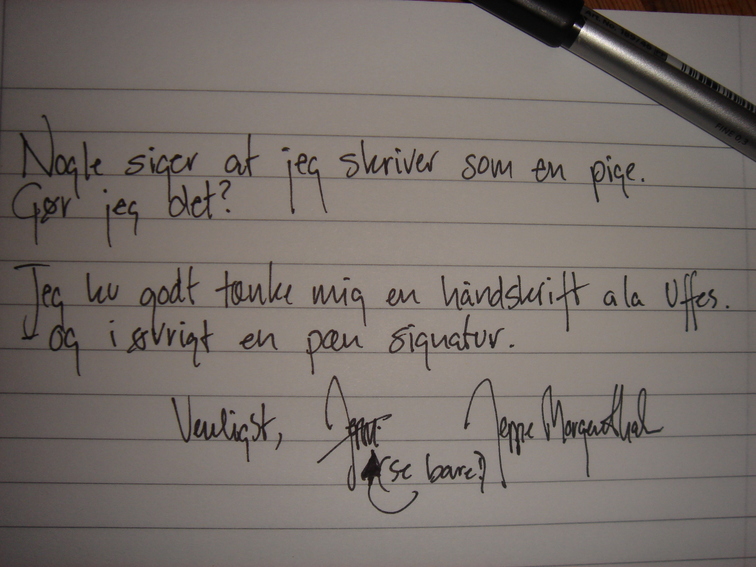 Nogle siger at jeg skriver som en pige.
Gør jeg det?
Jeg ku godt tænke mig en håndskrift a la Uffes.
Og i øvrigt en pæn signatur.
Venligst, Jeppe Morgenthal
(se bare!)